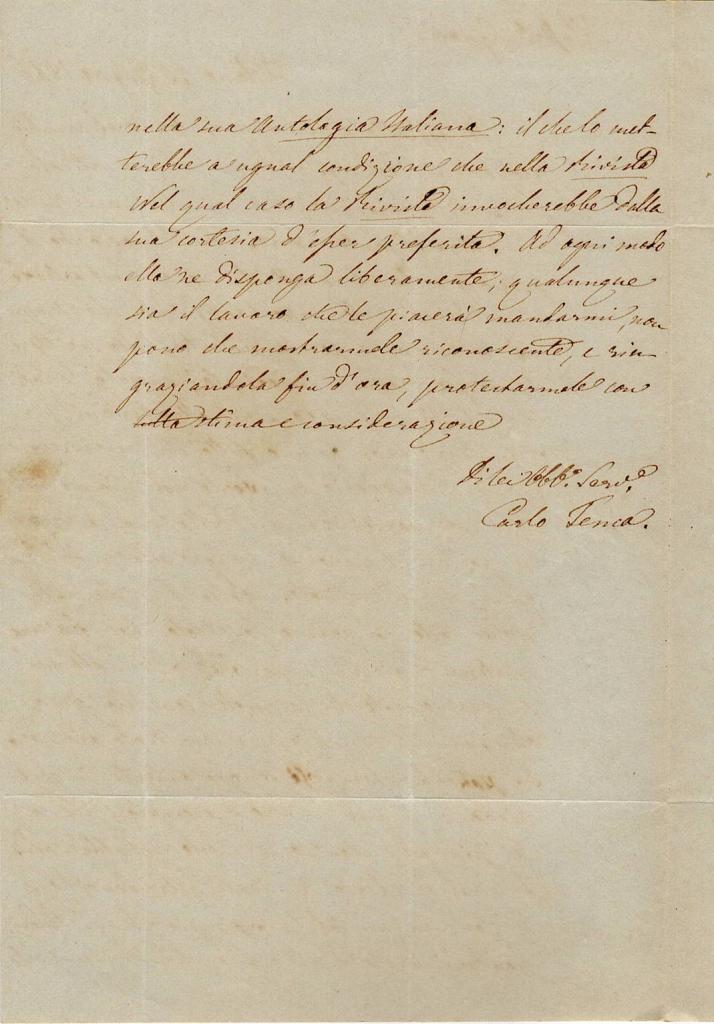 nella sua Antologia Italiana: il che lo met-
terebbe a ugual condizione che nella Rivista
Nel qual caso la Rivista invocherebbe dalla
sua cortesia d'esser preferita. Ad ogni modo
ella ne disponga liberamente; qualunque
sia il lavoro che le piacerà mandarmi, non
posso che mostrarmele riconoscente, e rin-
graziandola fin d'ora, protestarmele con
tutta stima e considerazione
Di lei Obb.º Serv.e
Carlo Tenca.